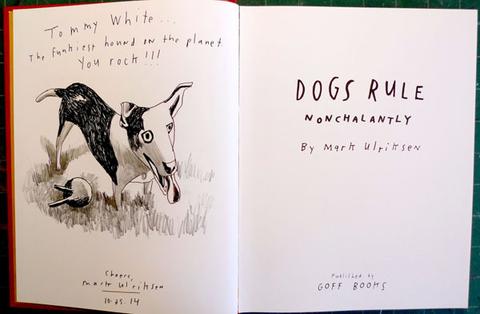 To mmy White...
The funkiest hound on the planet
You rock!!!
Cheers,
Mark Ulriksen
10.25.14
DOGS RULE
NONCHALANTLY
By Mark Ulriksen
Published by
GOFF BOOKS